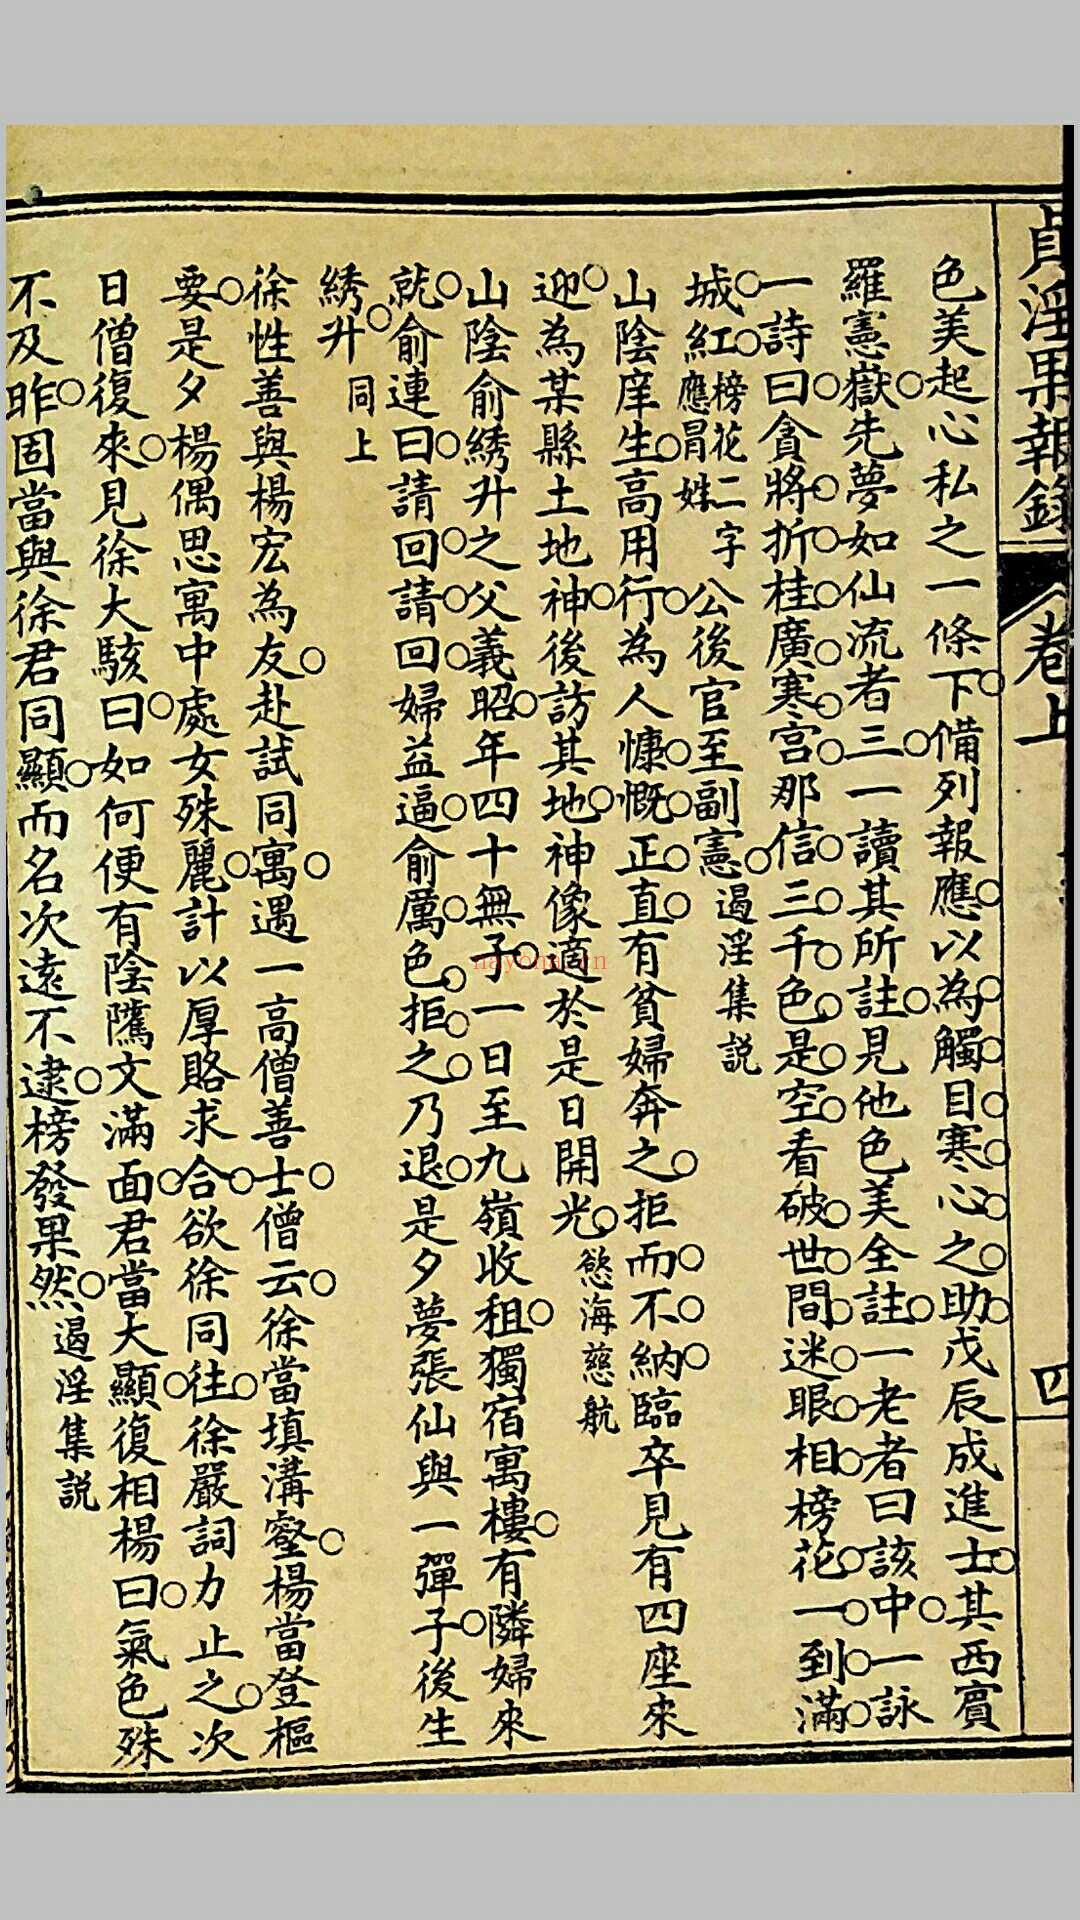 貞淫果報錄 卷上 四
色美起心私之一條下備列報應以為觸目寒心之助戊辰成進士其西賓
羅憲嶽先夢如仙流者三一讀其所註見他色美全註一老者曰該中一詠
一詩曰貪將折桂廣寒宮那信三千色是空看破世間迷眼相榜花一到滿
城紅榜花二字應冒姓公後官至副憲遏淫集説
山陰庠生高用行為人慷慨正直有貧婦奔之拒而不納臨卒見有四座來
迎為某縣土地神後訪其地神像適於是日開光慾海慈航
山陰俞綉升之父義昭年四十無子一日至九嶺收租獨宿寓樓有隣婦來
就俞連曰請回請回婦益逼俞厲色拒之乃退是夕夢張仙與一彈子後生
綉升同上
徐性善與楊宏為友赴試同寓遇一高僧善士僧云徐當填溝壑楊當登樞
要是夕楊偶思寓中處女殊麗計以厚賂求合欲徐同往徐嚴詞力止之次
日僧復來見徐大駭曰如何便有陰隲文滿面君當大顯復相楊曰氣色殊
不及昨固當與徐君同顯而名次遠不逮榜發果然遏淫集説
nayona.cn